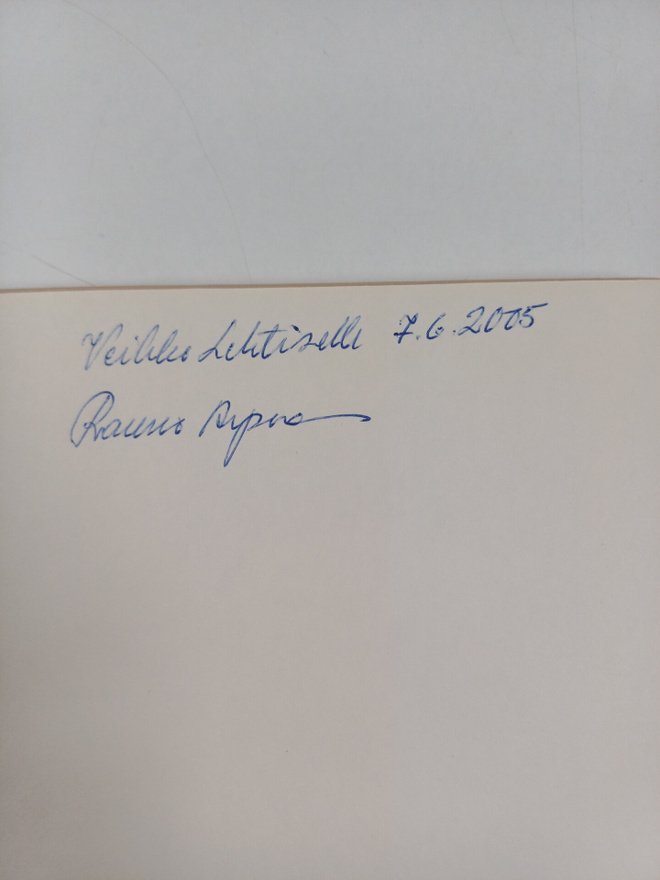 Veikko Lehtiselle 7.6.2005
Rauno